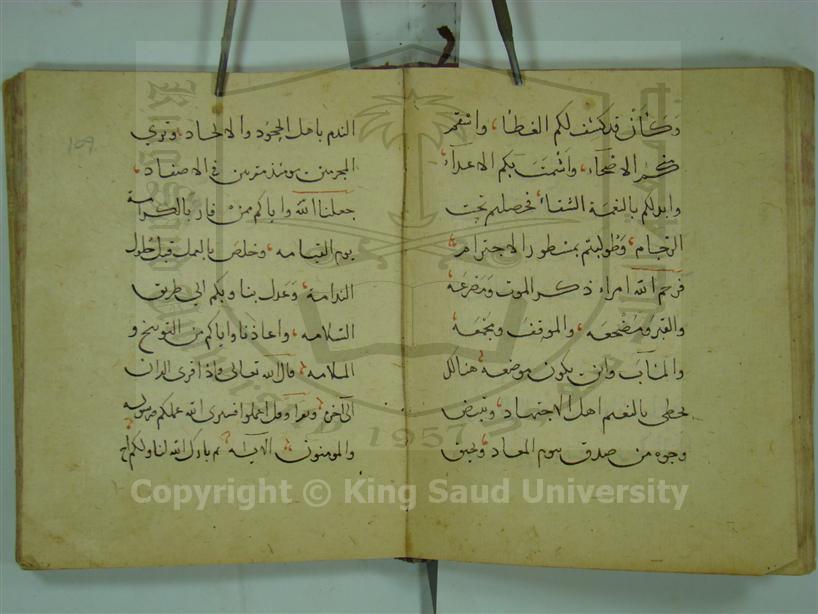 وكأن قد كشف لكم الغطا، وانتقم
منكم الاضحاء، وأشمت بكم الاعدآء
وابدلكم بالنعمة الشقاء، فحصلتم تحت
الرجام، وطولبتم بمسطور الاجترام،
فرحم الله امراء ذكر الموت ومصرعه
والقبر ومضجعه، والموقف ومجمعه،
والمئاب واين يكون موضعه، هنالك
يحظى بالنعيم اهل الاجتهاد، وتبيض
وجوه من صدق بيوم المعاد، ويحيق
109
الندم باهل الجحود والالحاد، وترى
المجرمين يومئذ مقرنين في الاصفاد،
جعلنا الله واياكم ممن فاز بالكرامة
يوم القيامه، وخلص بالعمل قبل حلول
الندامة، وعدل بنا وبكم الى طريق
السلامه، واعاذنا واياكم من التوبيخ و
الملامه، قال الله تعالى واذا قرى القران
الى آخره، ويقرأ وقل اعملوا فسيرى الله عملكم ورسوله
والمومنون، الآيه، ثم بارك الله لنا ولكم اخ
1957
Copyright © King Saud University